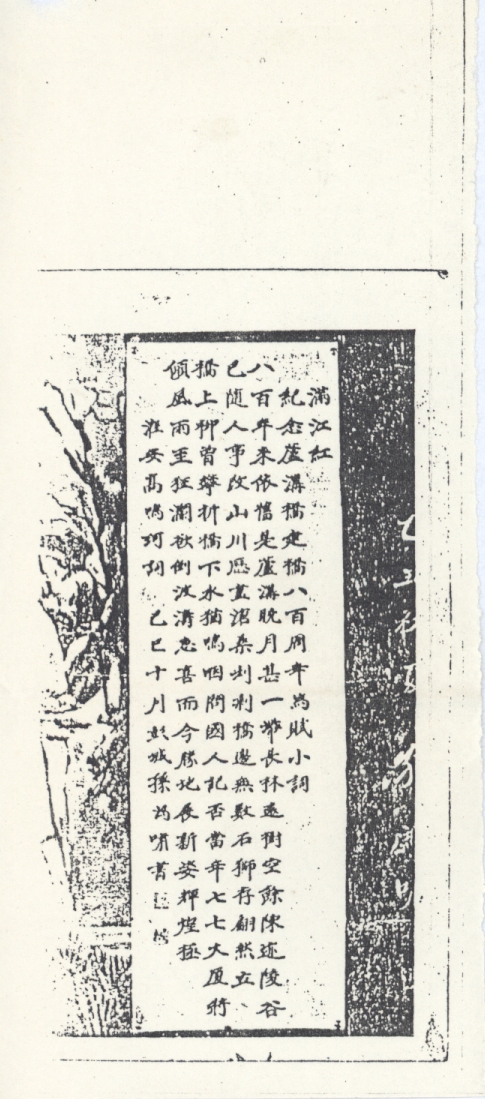 滿江紅
紀念蘆溝橋建橋八百周年為賦小詞
八百年來依舊是蘆溝曉月甚一帶長林遠樹空餘陳迹陵谷
已隨人事改山川歷盡滄桑刋剩橋邊無數石獅存翻然立
橋上柳曾攀折橋下水猶嗚咽問國人記否當年七七大厦將
傾風雨至狂瀾欲倒波濤忽喜而今勝地展新姿輝煌極
淮安高鳴珂詞 己巳十月彭城孫 嘯書